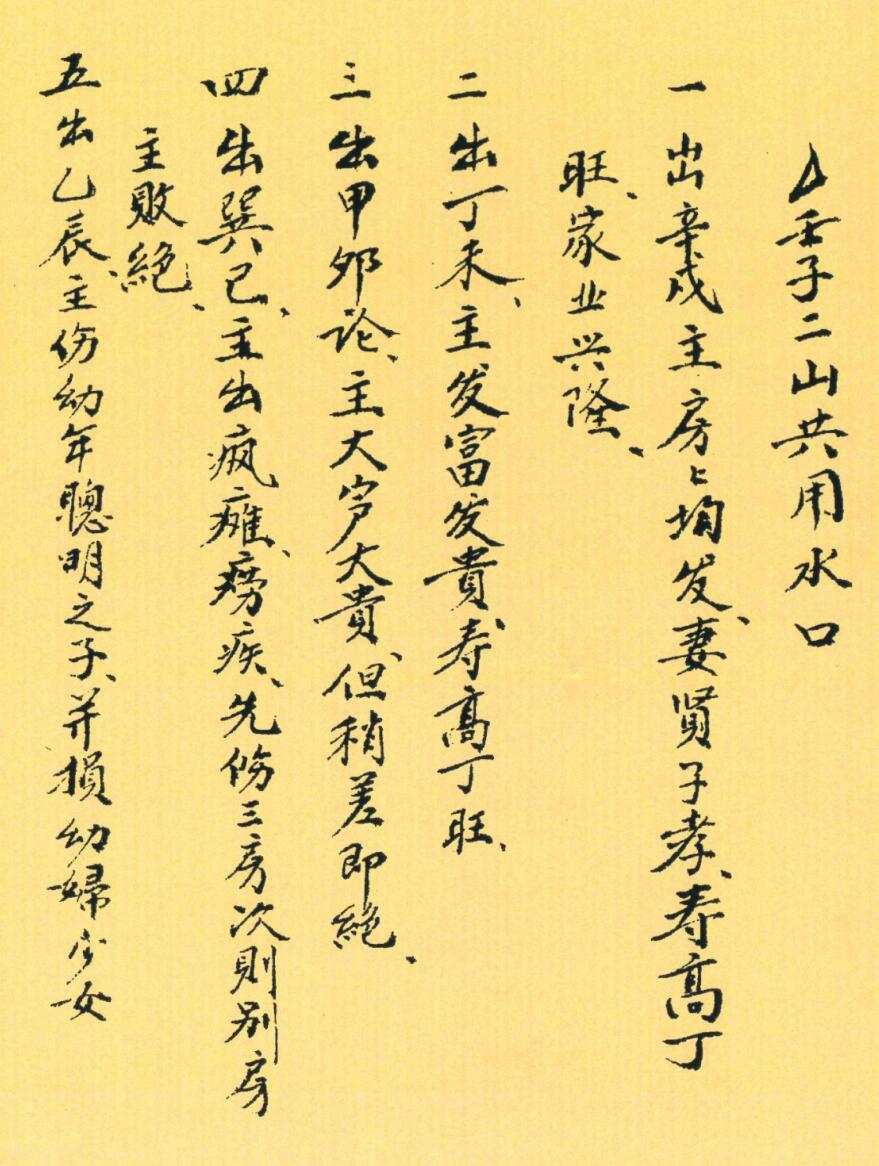 △壬子二山共用水口
一出辛戌主房々均发、妻贤子孝、寿高丁
旺、家业兴隆、
二出丁未、主发富发貴、寿高丁旺、
三出甲卯论、主大富大貴、但稍差即絕、
四出巽巳、主出疯瘫、痨疾、先伤三房次則别房
主败絕、
五出乙辰、主伤幼年聰明之子、并損幼婦少女